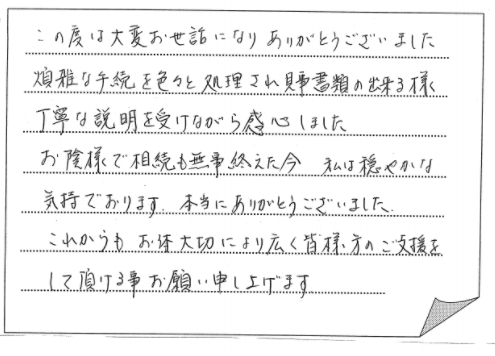 この度は大変お世話になり ありがとうございました
煩雑な手続を色々と処理され 見事書類の出来る様
丁寧な説明を受けながら感心しました
お陰様で相続も無事終えた今 私は穏やかな
気持であります。本当にありがとうございました。
これからも お体大切により広く皆様方のご支援を
して頂ける事お願い申し上げます